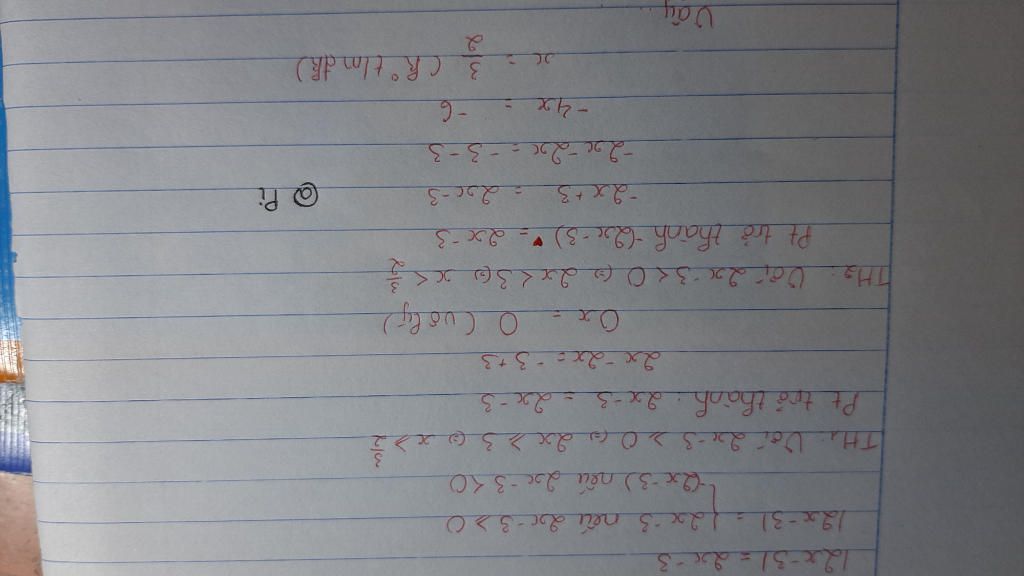 |2x-3| = 2x-3
|2x-3| = { 2x-3 nếu 2x-3 ≥ 0
-(2x-3) nếu 2x-3 < 0
TH₁: Với 2x-3 ≥ 0 (=) 2x ≥ 3 (=) x ≥ 3/2
Pt trở thành: 2x-3 = 2x-3
2x-2x = -3+3
0x = 0 (vô lý)
TH₂: Với 2x-3 < 0 (=) 2x < 3 (=) x < 3/2
Pt trở thành -(2x-3) = 2x-3
-2x+3 = 2x-3
@Pi
-2x-2x = -3-3
-4x = -6
x = 3/2 (K° t/m đk)
Vậy...